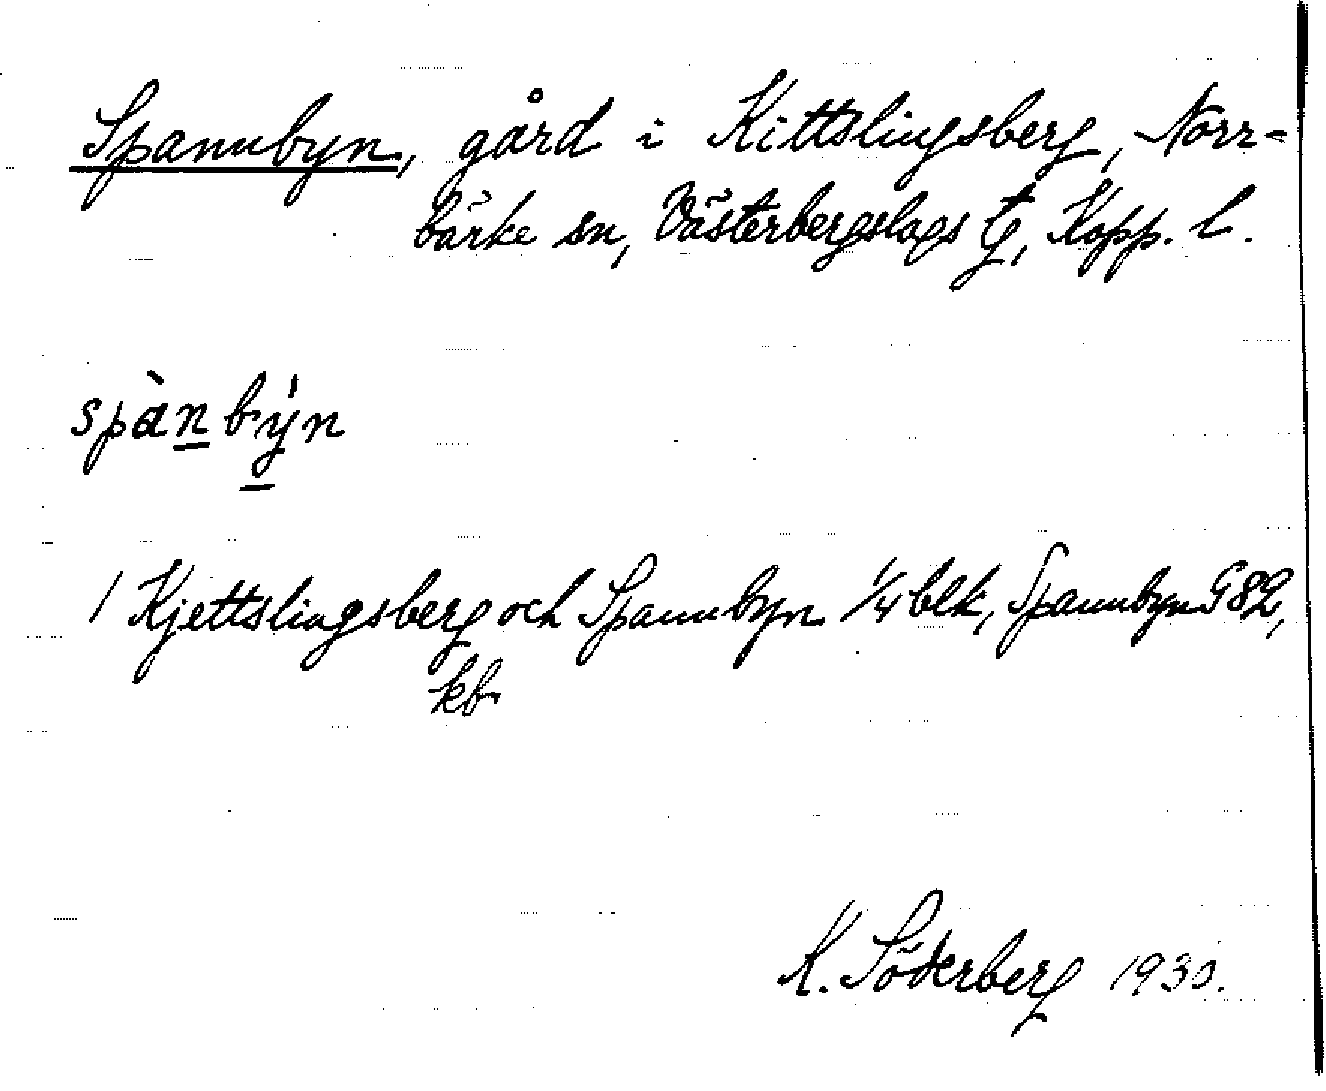 Spannbyn, gård i Kittslingsberg, Norr-
bärke sn, Västerbergslags tg, Kopp. l.
spàn býn
1 Kjettslingsberg och Spannbyn 1/4 blk, Spannbyn G82,
kb
K. Söderberg 1930.